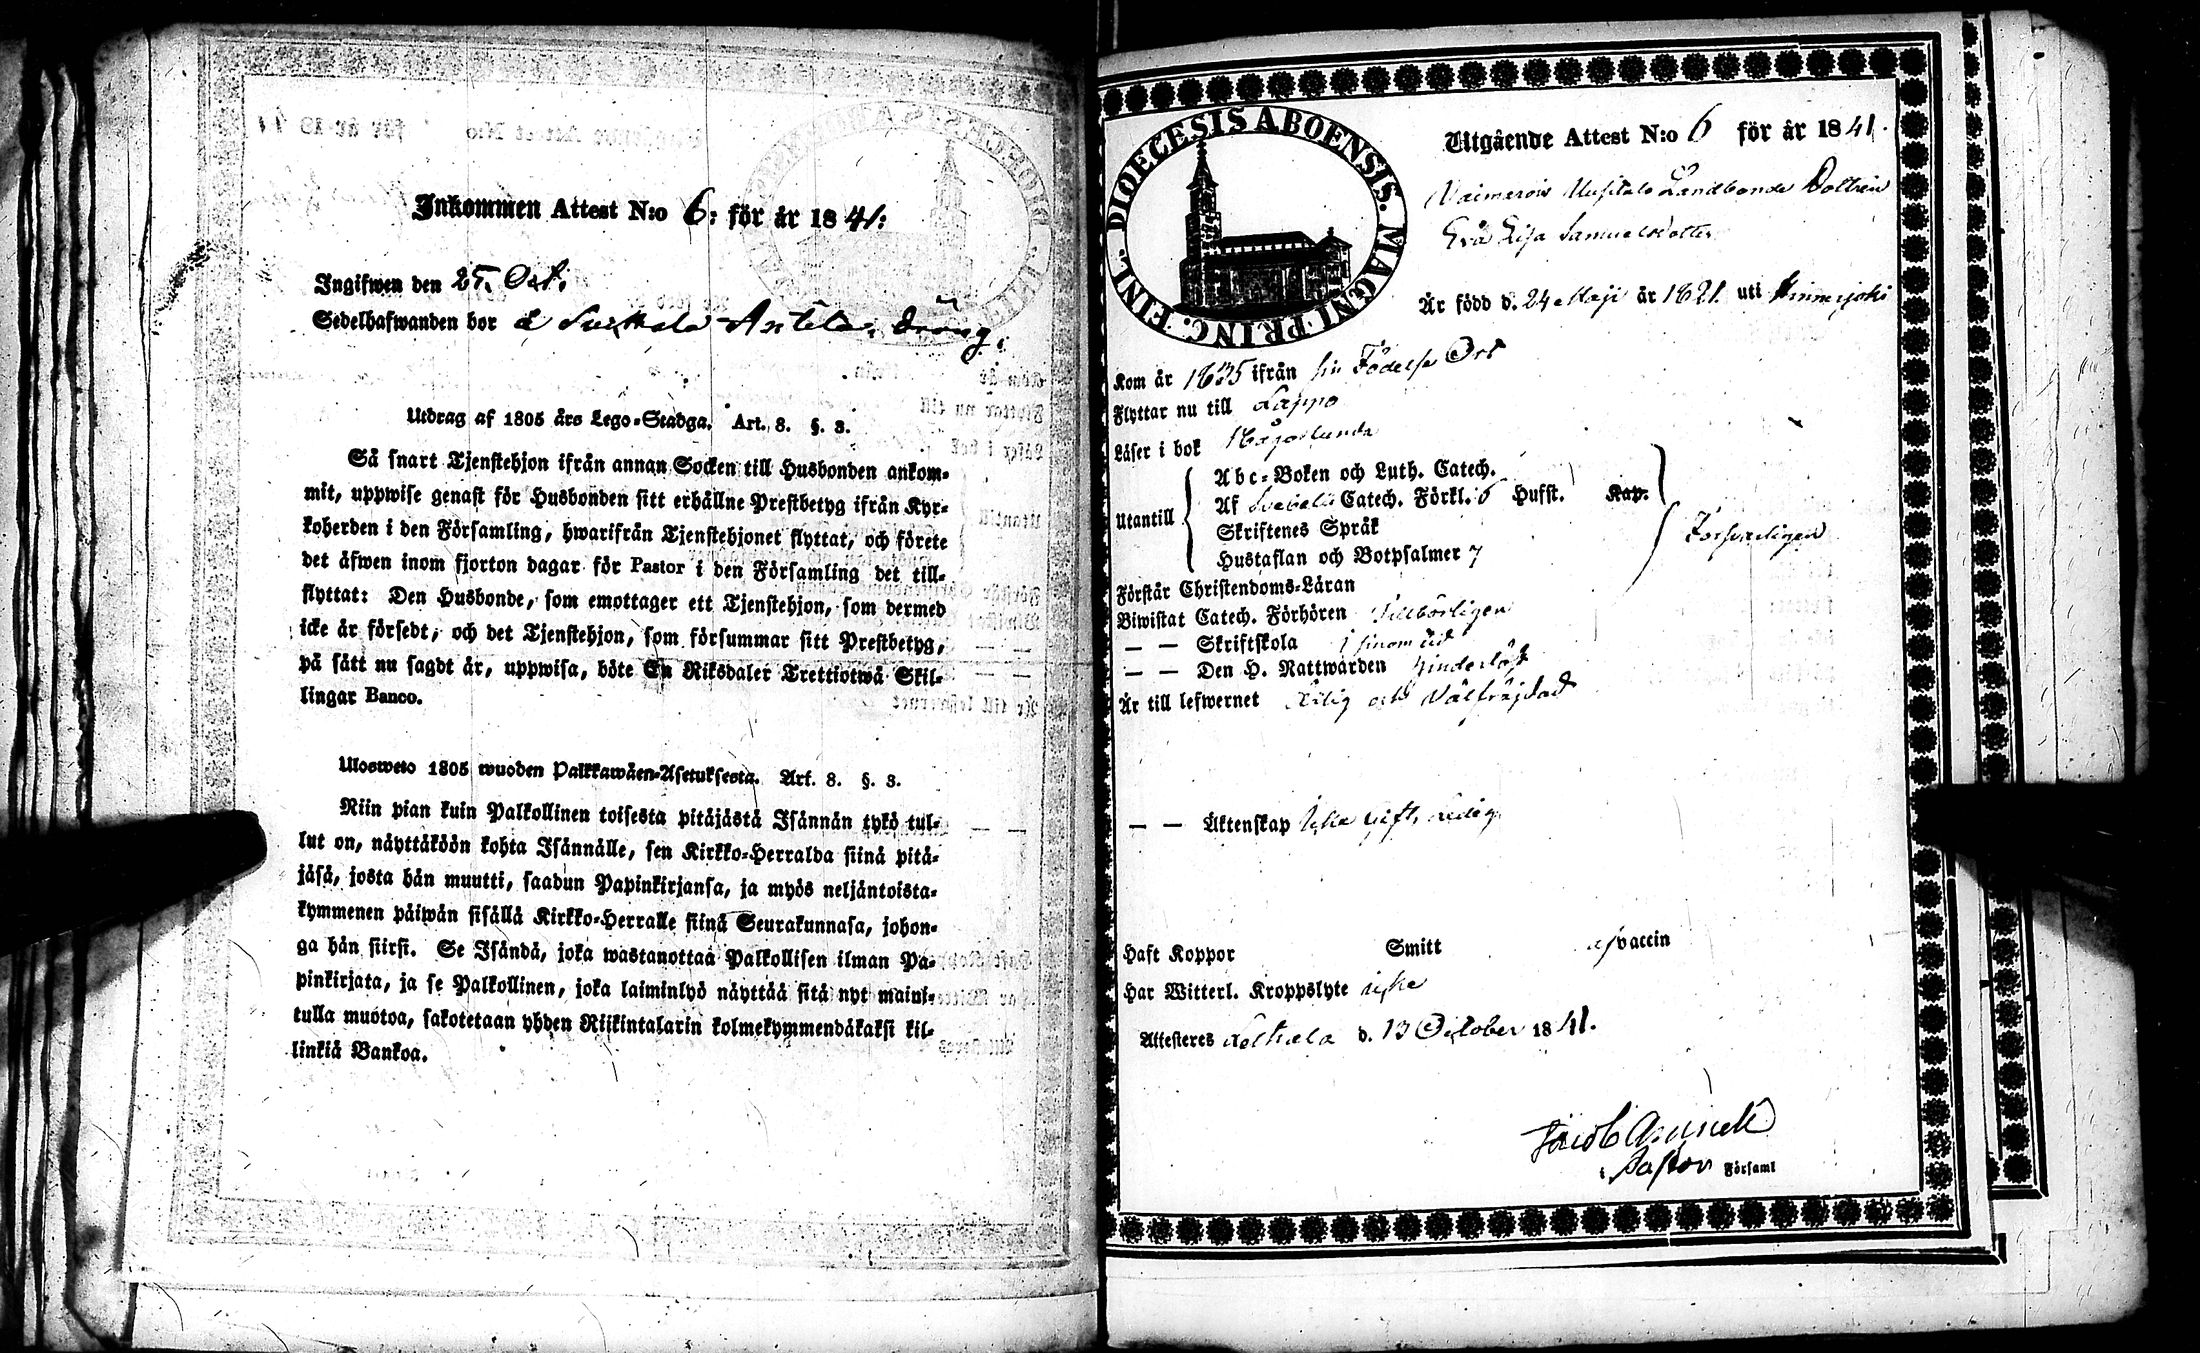 Inkommen Attest N:o 6: för år 1841:
Ingifwen den 25. Oct.
Sedelhafwanden bor å Antila, dräng.
Utdrag af 1805 års Lego-Stadga. Art. 8. §. 3.
Så snart Tjenstehjon ifrån annan Socken till Husbonden ankom-
mit, uppwise genast för Husbonden sitt erhållne Prestbetyg ifrån Kyr-
koherden i den Församling, hwarifrån Tjenstehjonet flyttat, och förete
det äfwen inom fjorton dagar för Pastor i den Församling det till-
flyttat: Den Husbonde, som emottager ett Tjenstehjon, som dermed
icke är försedt, och det Tjenstehjon, som försummar sitt Prestbetyg,
på sätt nu sagdt är, uppwisa, böte En Riksdaler Trettiotwå Skil-
lingar Banco.
Ulosweto 1805 wuoden Palkkawäen-Asetuksesta. Art. 8. §. 3.
Niin pian kuin Palkollinen toisesta pitäjästä Isännän tykö tul-
lut on, näyttäköön kohta Isännälle, sen Kirkko-Herralda siinä pitä-
jäsä, josta hän muutti, saadun Papinkirjansa, ja myös neljäntoista-
kymmenen päiwän sisällä Kirkko-Herralle siinä Seurakunnasa, johon-
ga hän siirsi. Se Isändä, joka wastanottaa Palkollisen ilman Pa-
pinkirjata, ja se Palkollinen, joka laiminlyö näyttää sitä nyt mainit-
tulla muotoa, sakotetaan yhden Riikintalarin kolmekymmendäkaksi kil-
linkiä Bankoa.
DIOECESIS ABOENSIS. MAGNI PRINC. FINL.
Utgående Attest N:o 6 för år 1841.
Landbonde Dottren
Eva Lisa Samuelsdotter
Är född d. 24 Maji år 1821. uti Kinnerjoki
Kom år 1835 ifrån sin Födelse Ort
Flyttar nu till Lappo
Läser i bok
Utantill
Abc-Boken och Luth. Catech.
Af Svebelii Catech. Förkl. 6 Hufst. Kap.
Skriftenes Språk
Hustaflan och Botpsalmer 7
Försvarligen
Förstår Christendoms-Läran
Biwistat Catech. Förhören Tillbörligen
— — Skriftskola i sinom tid
— — Den H. Nattwarden hinderlöst
Är till lefwernet Ärlig och Välfräjdad
— — Äktenskap Icke Gift, Ledig
Haft Koppor Smitt af vaccin
Har Witterl. Kroppslyte icke
Attesteres d. 13 October 1841.
Jacob
Pastor Församl